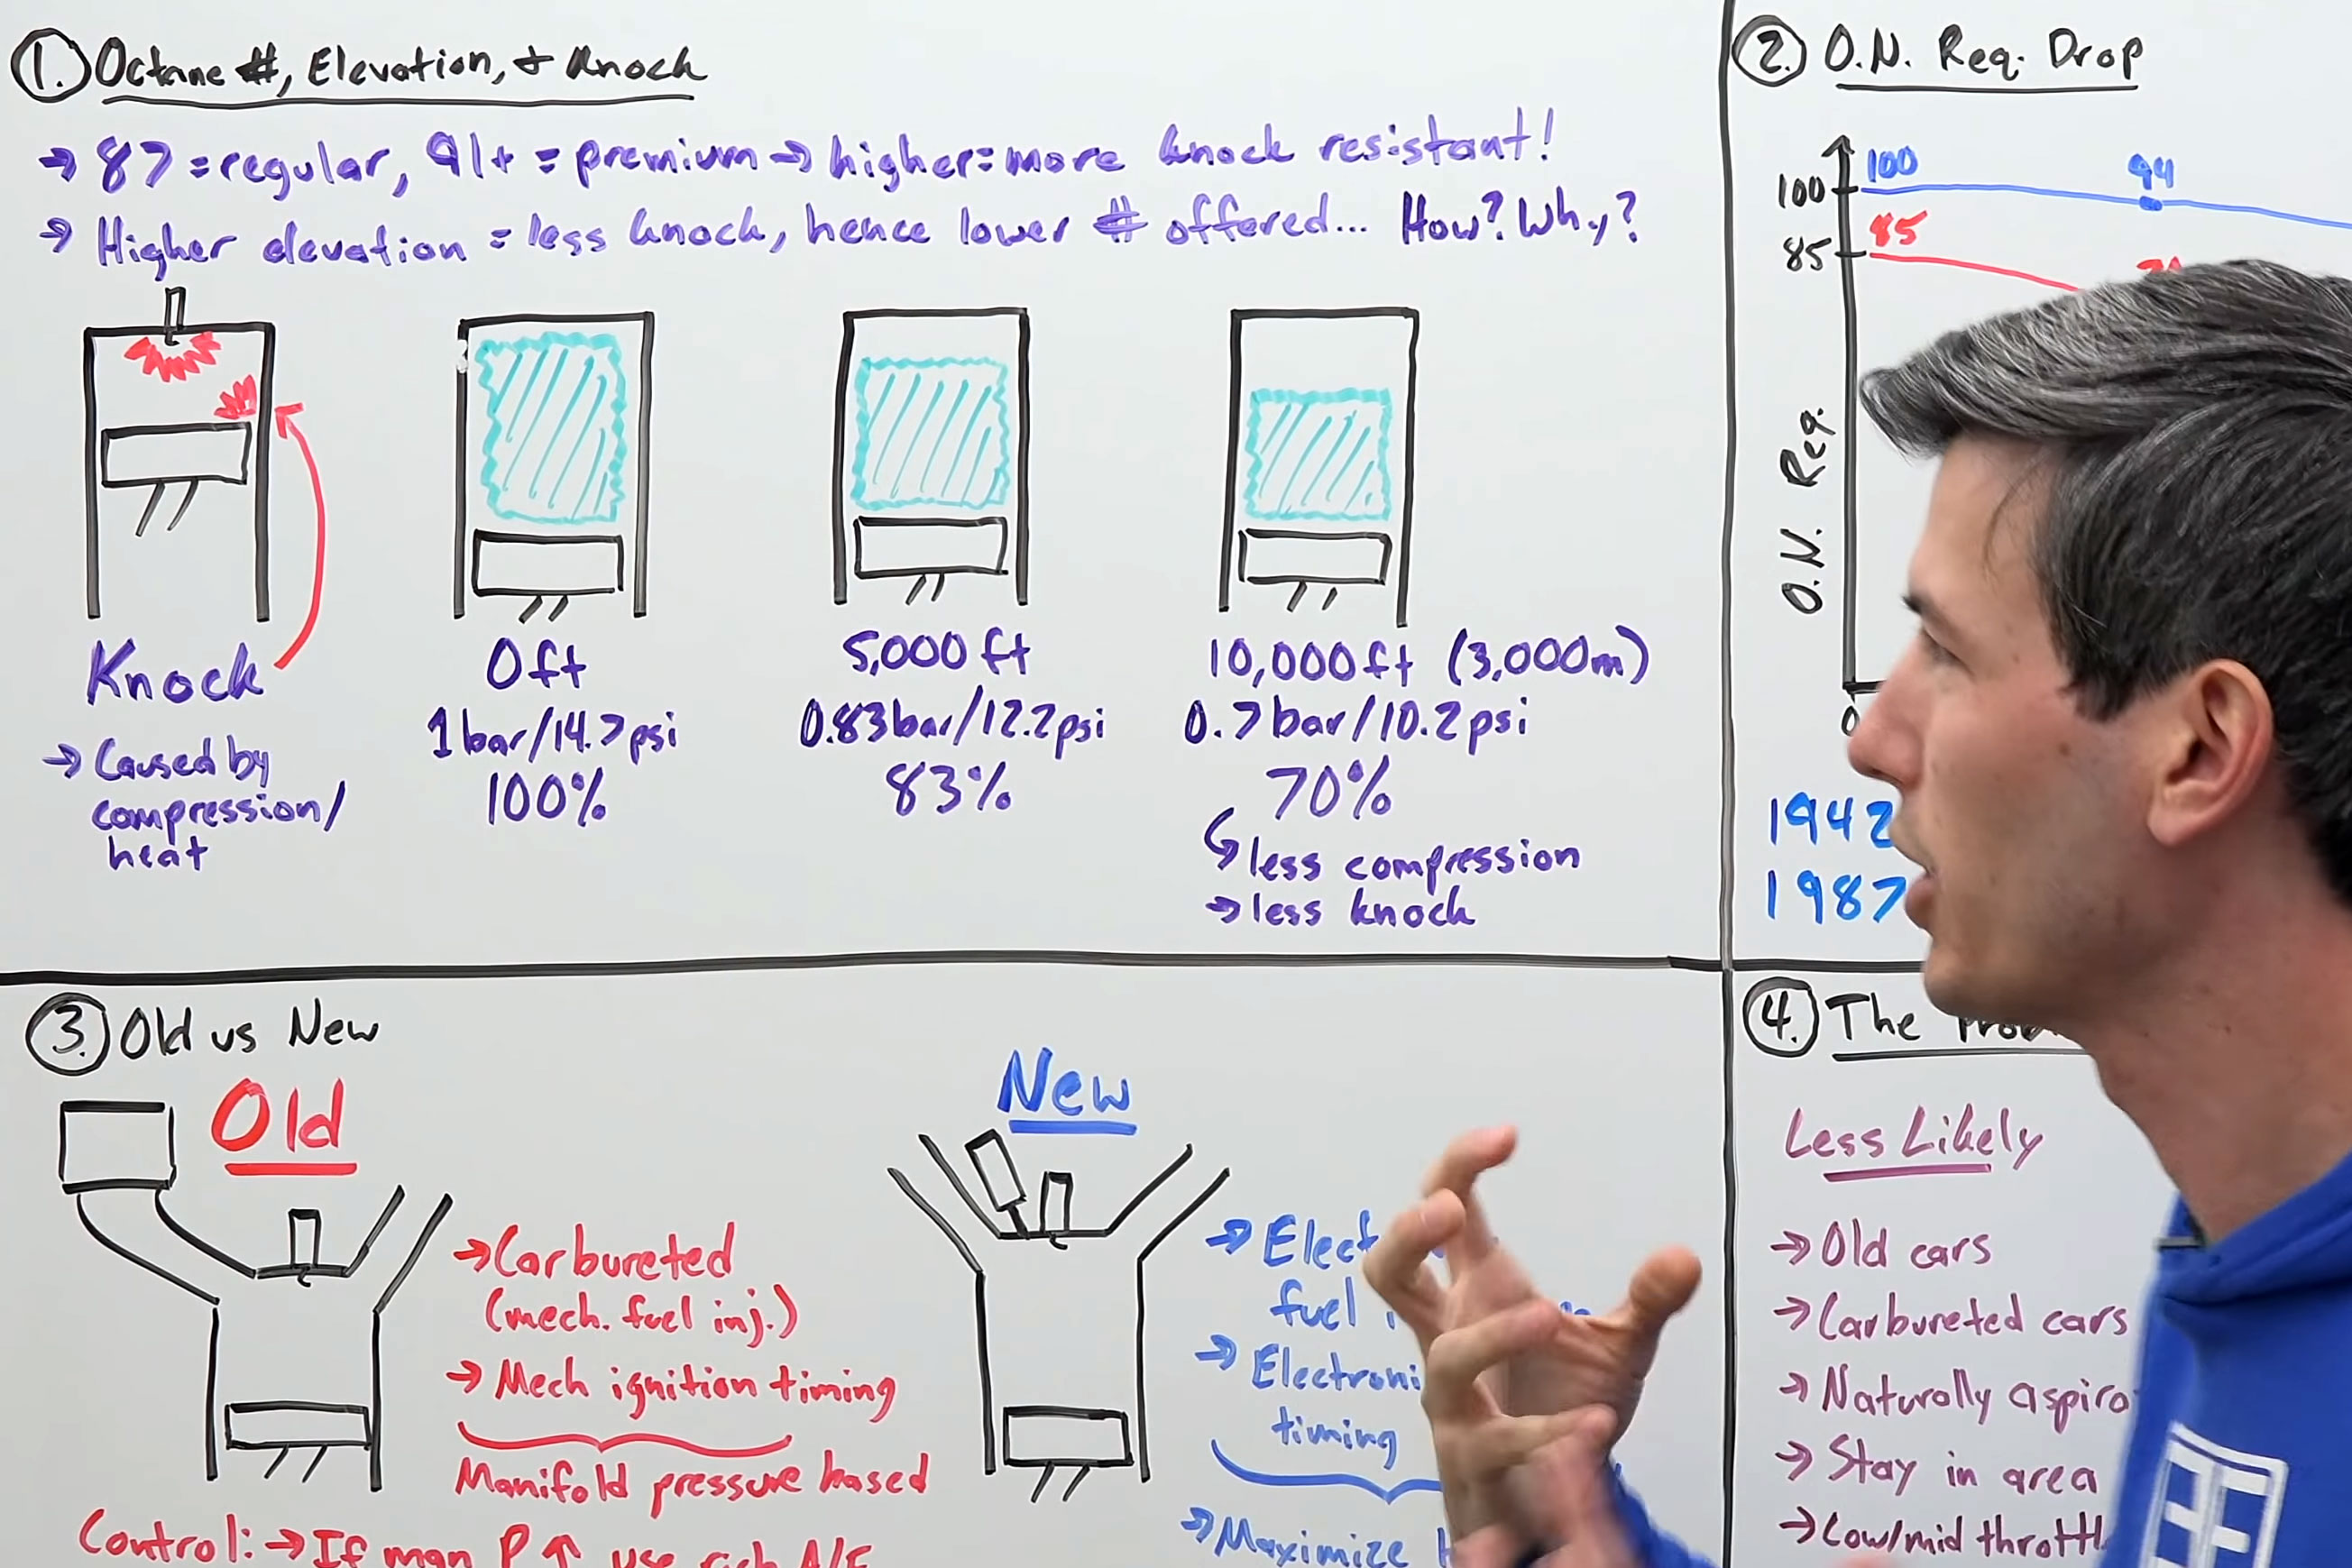 1. Octane #, Elevation, & Knock
→ 87 = regular, 91+ = premium → higher = more knock resistant!
→ Higher elevation = less knock, hence lower # offered... How? Why?
Knock
→ Caused by
compression/
heat
0ft
1 bar/14.7psi
100%
5,000 ft
0.83bar/12.2psi
83%
10,000ft (3,000m)
0.7bar/10.2psi
70%
↳ less compression
→ less knock
2. O.N. Req. Drop
100
94
100
85
85
O.N. Req.
0
1942
1987
3. Old vs New
Old
→ Carbureted
(mech. fuel inj.)
→ Mech ignition timing
Manifold pressure based
Control: → If man P ↑ use rich A/F
New
fuel
timing
→ Maximize
4. The
Less Likely
→ Old cars
→ Carbureted cars
→ Naturally
→ Stay in area
→ Low/mid